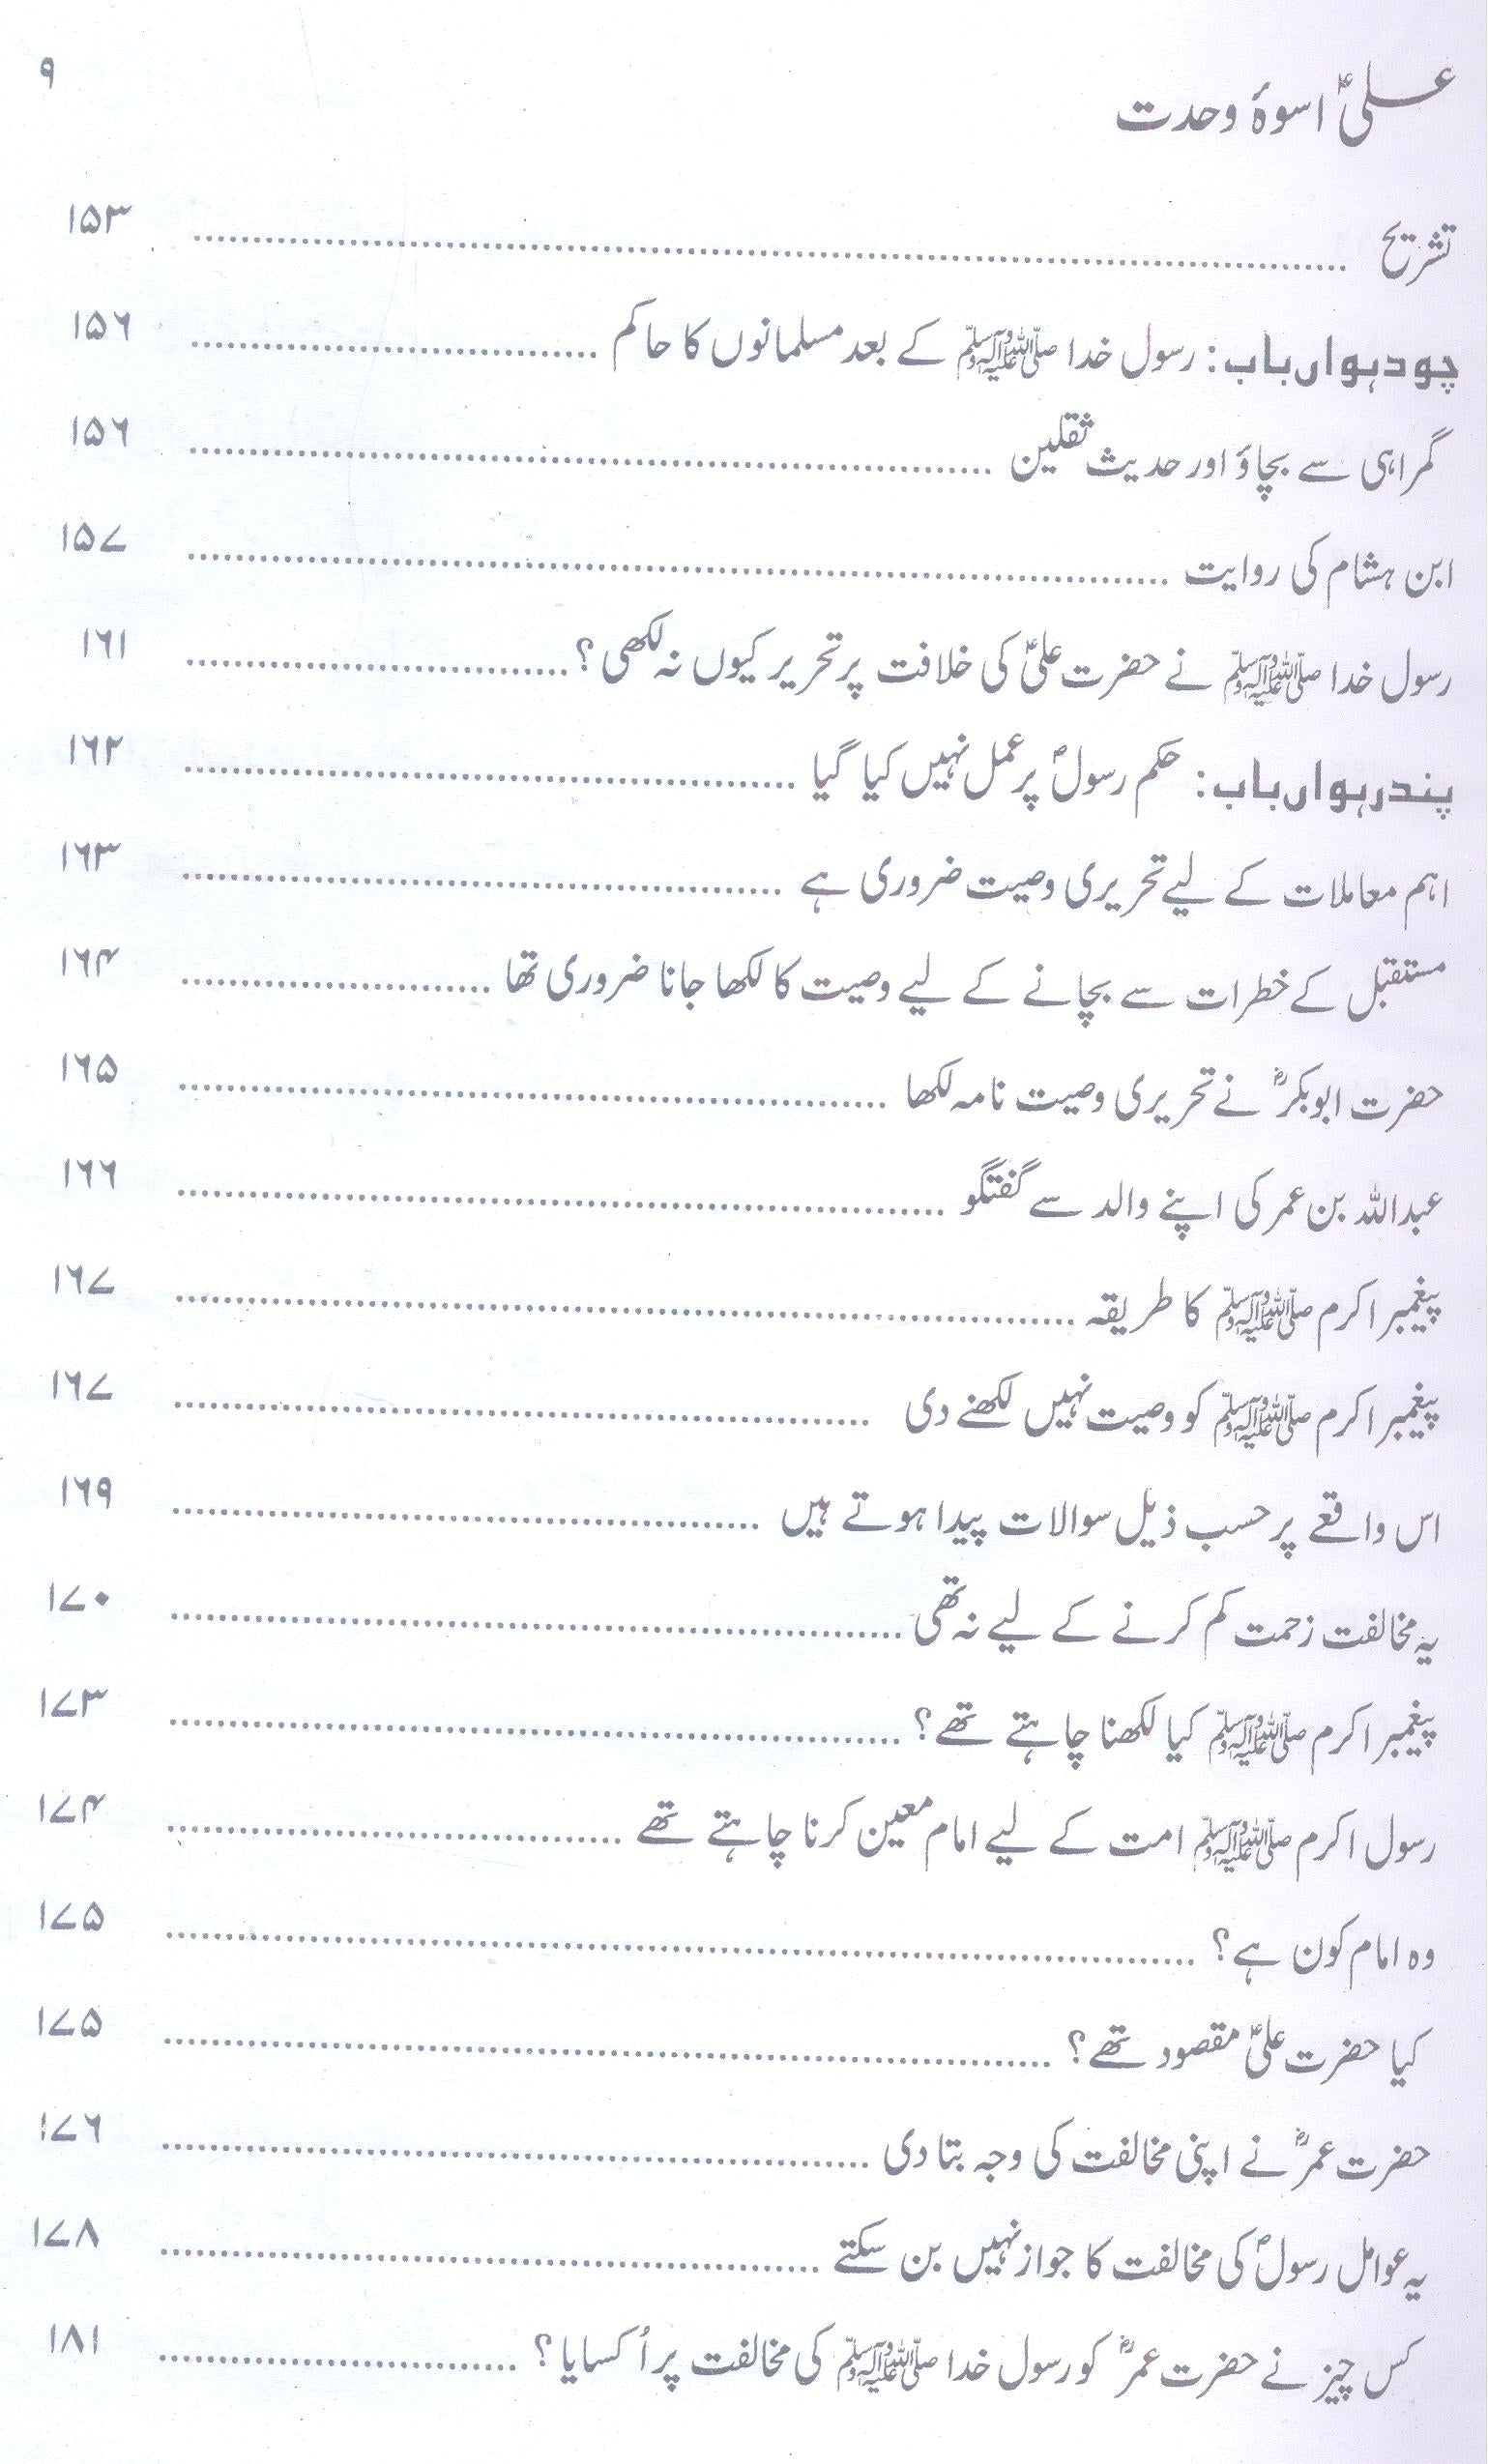 علیؑ اسوۂ وحدت ۹
تشریح ........ ۱۵۳
چودہواں باب: رسول خدا ﷺ کے بعد مسلمانوں کا حاکم ........ ۱۵۶
گمراہی سے بچاؤ اور حدیث ثقلین ........ ۱۵۶
ابن ہشام کی روایت ........ ۱۵۷
رسول خدا ﷺ نے حضرت علیؑ کی خلافت پر تحریر کیوں نہ لکھی؟ ........ ۱۶۱
پندرہواں باب: حکم رسولؐ پر عمل نہیں کیا گیا ........ ۱۶۲
اہم معاملات کے لیے تحریری وصیت ضروری ہے ........ ۱۶۳
مستقبل کے خطرات سے بچانے کے لیے وصیت کا لکھا جانا ضروری تھا ........ ۱۶۴
حضرت ابوبکرؓ نے تحریری وصیت نامہ لکھا ........ ۱۶۵
عبداللہ بن عمر کی اپنے والد سے گفتگو ........ ۱۶۶
پیغمبر اکرم ﷺ کا طریقہ ........ ۱۶۷
پیغمبر اکرم ﷺ کو وصیت نہیں لکھنے دی ........ ۱۶۷
اس واقعے پر حسب ذیل سوالات پیدا ہوتے ہیں ........ ۱۶۹
یہ مخالفت زحمت کم کرنے کے لیے نہ تھی ........ ۱۷۰
پیغمبر اکرم ﷺ کیا لکھنا چاہتے تھے؟ ........ ۱۷۳
رسول اکرم ﷺ امت کے لیے امام معین کرنا چاہتے تھے ........ ۱۷۴
وہ امام کون ہے؟ ........ ۱۷۵
کیا حضرت علیؑ مقصود تھے؟ ........ ۱۷۵
حضرت عمرؓ نے اپنی مخالفت کی وجہ بتا دی ........ ۱۷۶
یہ عوامل رسولؐ کی مخالفت کا جواز نہیں بن سکتے ........ ۱۷۸
کس چیز نے حضرت عمرؓ کو رسول خدا ﷺ کی مخالفت پر اُکسایا؟ ........ ۱۸۱